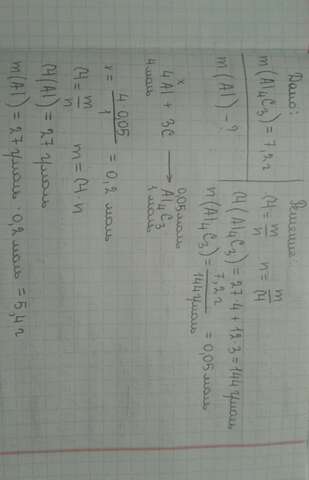 Дано:
m(Al₄C₃) = 7,2 г
m(Al) - ?
Решение:
M = m/n n = m/M
M(Al₄C₃) = 27·4 + 12·3 = 144 г/моль
n(Al₄C₃) = 7,2 г / 144 г/моль = 0,05 моль
x 0,05 моль
4Al + 3C ⟶ Al₄C₃
4 моль 1 моль
x = 4·0,05 / 1 = 0,2 моль
M = m/n m = M·n
M(Al) = 27 г/моль
m(Al) = 27 г/моль · 0,2 моль = 5,4 г